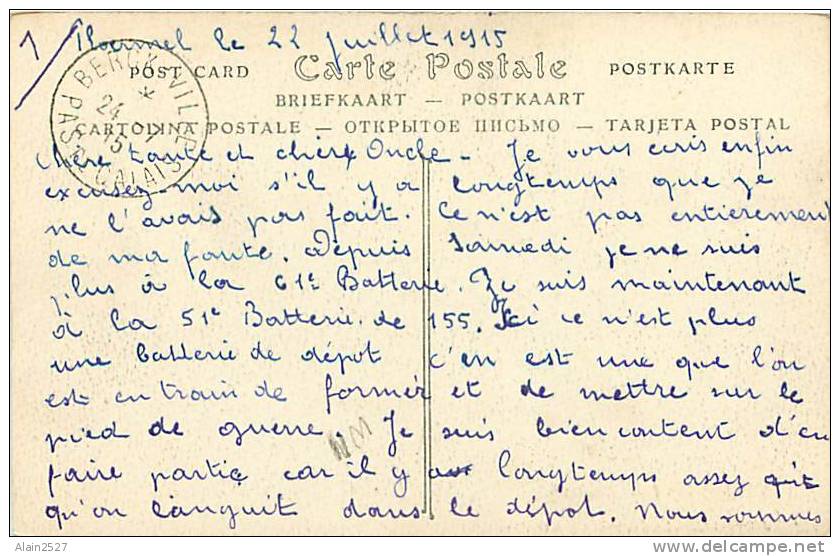 1/ Ploermel le 22 juillet 1915
BERCK-VILLE
24 - 7
15
PAS-DE-CALAIS
POST CARD Carte Postale POSTKARTE
BRIEFKAART — POSTKAART
CARTOLINA POSTALE — ОТКРЫТОЕ ПИСЬМО — TARJETA POSTAL
chère tante et chère Oncle - Je vous écris enfin
excusez moi s'il y a longtemps que je
ne l'avais pas fait. Ce n'est pas entièrement
de ma faute. Depuis Samedi je ne suis
plus à la 61e Batterie. Je suis maintenant
à la 51e Batterie de 155. Ici ce n'est plus
une batterie de dépot c'en est une que l'on
est en train de former et de mettre sur le
pied de guerre. Je suis bien content d'en
faire partie car il y a longtemps assez
qu'on languit dans le dépot. Nous sommes
NM
Alain2527
delcampe.net